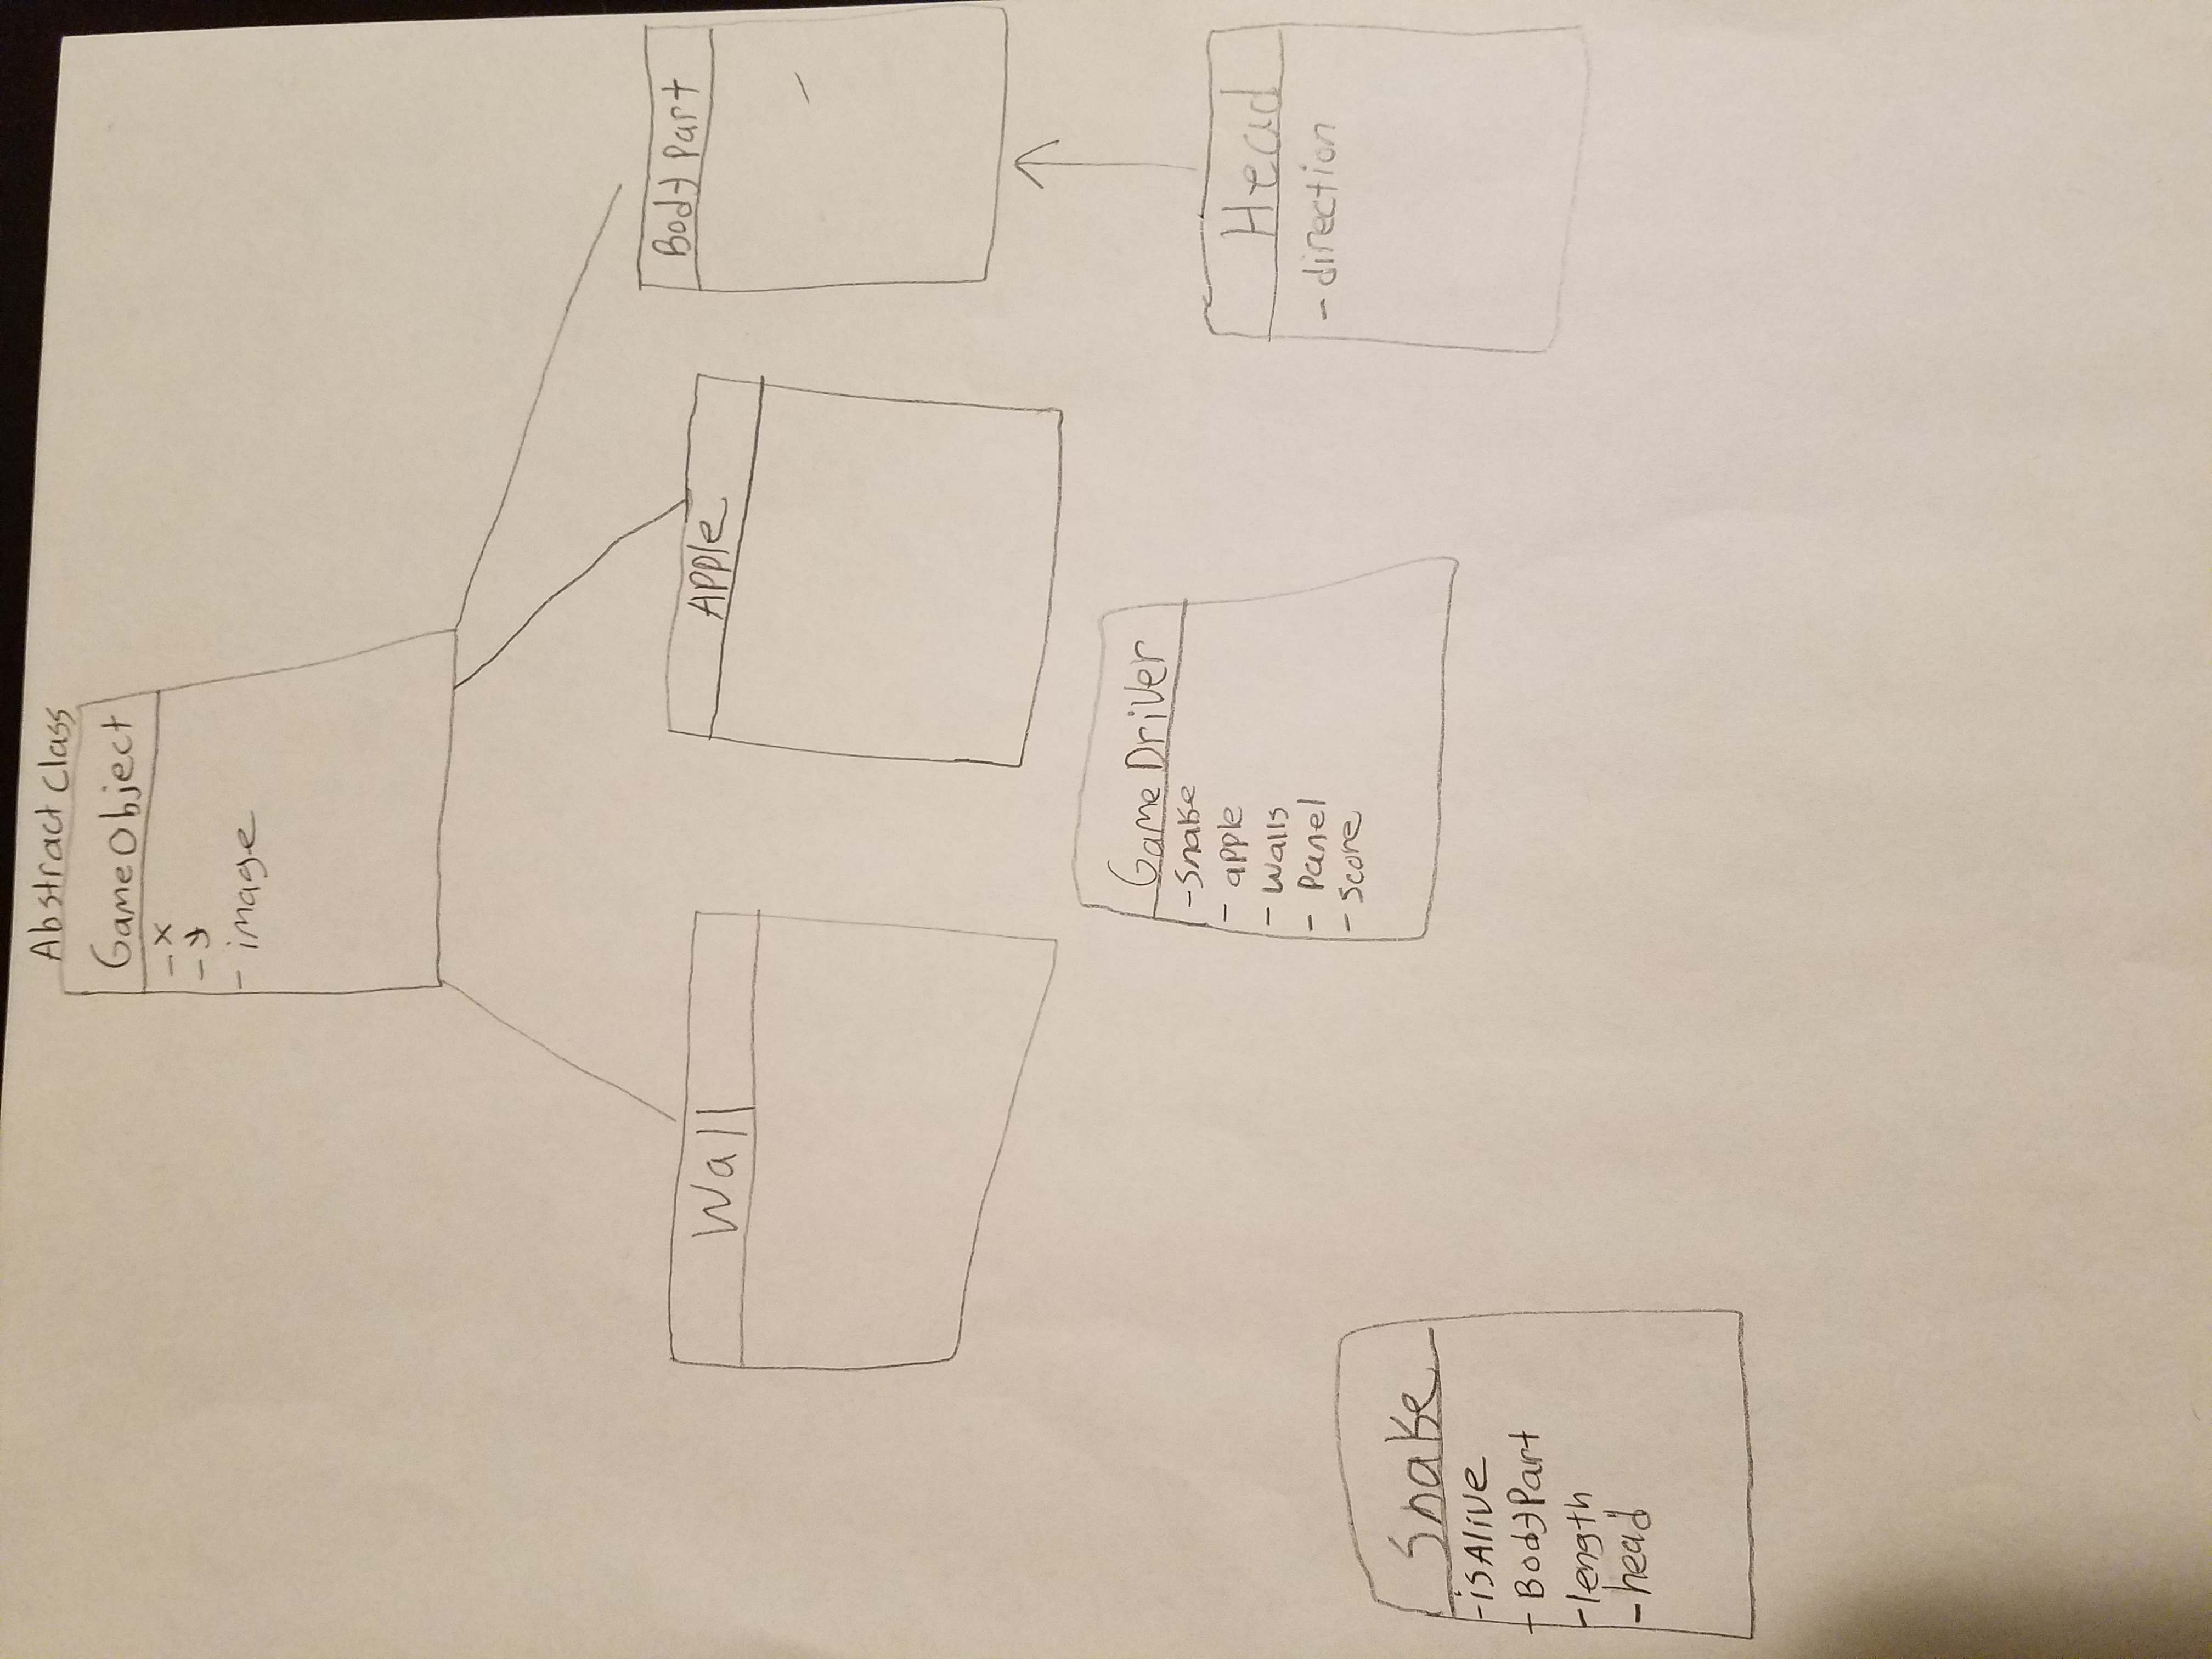 Abstract Class
GameObject
- x
- y
- image
Wall
Apple
Body Part
Game Driver
- Snake
- apple
- Walls
- Panel
- Score
Head
- direction
Snake
- isAlive
- BodyPart
- length
- head